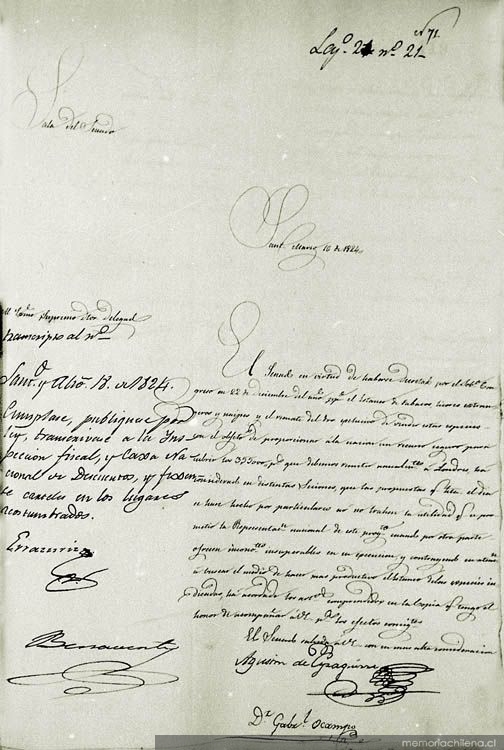 N 71.
Leg.º 2 nº 21
Sala del Senado
Sant. Marzo 10 de 1824.
Sor. Supremo Dtor. Delegado
transcripto al nº
Sant.º y Abril 18. de 1824.
Cumplase, publiquese por
ley, transcrivase a la Ins
pección fiscal, y Caxa Na
cional de Descuentos, y fixen
se carteles en los lugares
acostumbrados.
Errazuriz
Benavente
El Senado en virtud de haberse decretado por el Sob.º Con
greso en 22 de diciembre del año pp.º el Estanco de tabacos, licores extran
geros y naypes y el remate del dro. exclusivo de vender estas especies
con el objeto de proporcionar a la nacion un recurso seguro para
cubrir los 355000 p.s que debemos remitir anualm.te a Londres, ha
considerado en distintas Sesiones, que las propuestas q.e hta. el dia
se han hecho por particulares no se trahen la utilidad q.e se pro
metio la Representac.n nacional de este proy.to cuando por otra parte
ofrecen inconv.tes insuperables en su execucion, y contrayendo su atenc.n
a buscar el medio de hacer mas productivo el Estanco de las especies in
dicadas, ha acordado los art.s comprendidos en la Copia q.e tengo el
honor de acompañar a V.E. p.a los efectos consig.tes
El Senado saluda a V.E. con su mas alta consideracion
Agustin de Eyzaguirre
Dr. Gab.l Ocampo
memoriachilena.cl